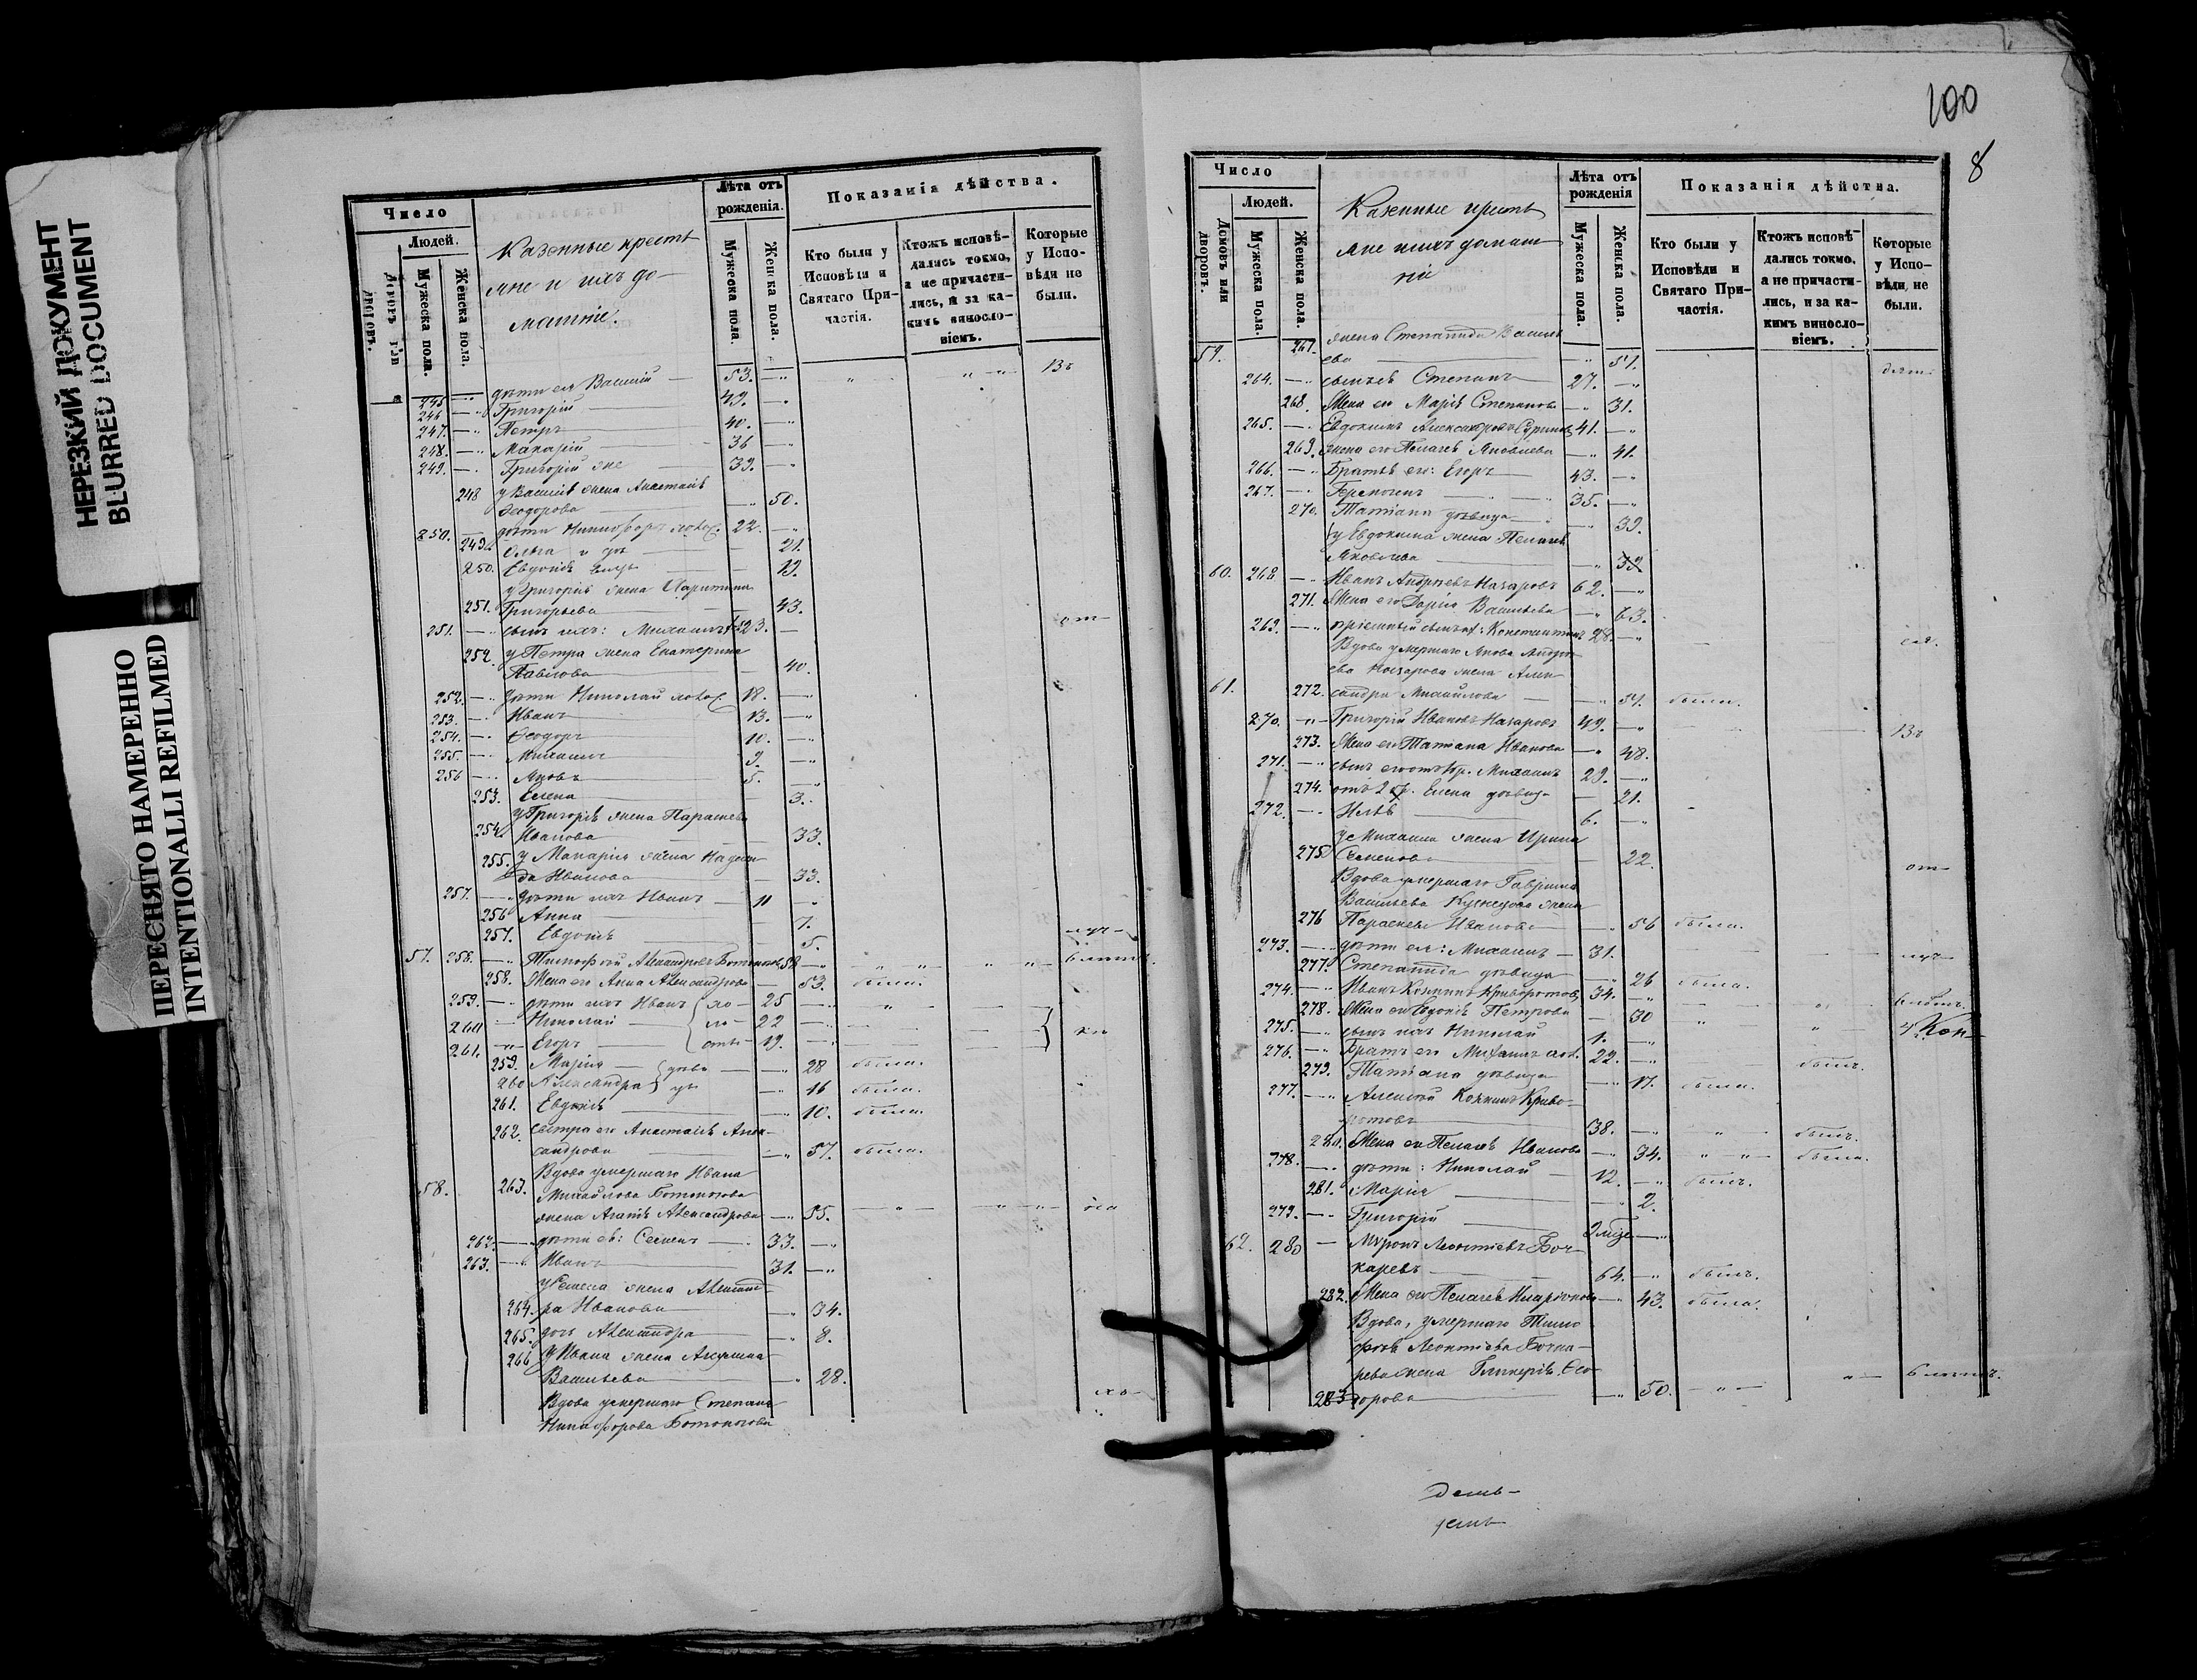 НЕРЕЗКИЙ ДОКУМЕНТ
BLURRED DOCUMENT
ПЕРЕСНЯТО НАМЕРЕННО
INTENTIONALLI REFILMED
Число
Людей.
дворовъ.
Мужеска пола.
Женска пола.
Казенные кресть
яне и ихъ до-
машніе.
Лѣта отъ рожденія.
Мужеска пола.
Женска пола.
Показанія дѣйства.
Кто были у Исповѣди и Святаго Причастія.
Ктожъ исповѣдались токмо, а не причастились, и за какимъ винословіемъ.
Которые у Исповѣди не были.
245 дѣти ея Василій 53.
246 Григорій 49.
247. Петръ 40.
248. Макарій 36
249. Григорій же 39.
248 у Василія жена Анастасія
Ѳеодорова 50.
250. дѣти Никифоръ холос. 22.
249. Ольга 21.
250. Евдокія 19.
у Григорія жена Харитина
251. Григорьева 43.
251. сынъ ихъ: Михаилъ 23.
252. у Петра жена Екатерина
Павлова 40.
252. дѣти Николай холос. 18.
253. Иванъ 13.
254. Ѳеодоръ 10.
255. Михаилъ 9.
256 Яковъ 5.
253. Елена 3.
у Григорія жена Параскева
254. Иванова 33.
255. у Макарія жена Надеж-
да Иванова 33.
257. дѣти ихъ Иванъ 11
256 Анна 7.
257. Евдокія 5.
57. 258. Тимофей Александровъ 58
258. Жена его Анна Александрова 53. была.
259. дѣти ихъ Иванъ хо- 25
260 Николай ло- 22
261. Егоръ сты- 19.
259. Марія дѣви- 28 была.
260 Александра цы 16 была.
261. Евдокія 10. была.
262. сестра его Анастасія Алек-
сандрова 57. была.
Вдова умершаго Ивана
58. 263. Михайлова
жена Агафія Александрова 55.
262. дѣти ея: Семенъ 33.
263. Иванъ 31.
у Семена жена Александ-
264. ра Иванова 34.
265. дочь Александра 8.
266 У Ивана жена Акулина
Васильева 28.
Вдова умершаго Степана
Никифорова
100
8
Число
Людей.
Домовъ или дворовъ.
Мужеска пола.
Женска пола.
Казенные кресть
яне ихъ домаш
ніе
Лѣта отъ рожденія
Мужеска пола.
Женска пола.
Показанія дѣйства.
Кто были у Исповѣди и Святаго Причастія.
Ктожъ исповѣдались токмо, а не причастились, и за какимъ винословіемъ.
Которые у Исповѣди не были.
59. 267. жена Степанида Василь
ева 51.
264. сынъ ея Степанъ 27.
268. Жена его Марія Степанова 31.
265. Евдокимъ Александровъ 41.
269. жена его Пелагея Яковлева 41.
266. Братья его: Егоръ 43.
267. 35.
270. Татіана дѣвица 39.
у Евдокима жена Пелагея
Яковлева 39
60. 268 Иванъ Андреевъ Назаровъ 62.
271. Жена его Дарія Васильева 63.
269. пріемный сынъ их: Константинъ 28.
Вдова умершаго Якова Андре-
ева Назарова жена Алек-
61. 272. сандра Михайлова 54. была.
270. Григорій Ивановъ Назаровъ 49.
273. Жена его Татіана Иванова 48.
271. Михаилъ 29.
274. Елена дѣвица 21.
272. Илья 6.
у Михаила жена Ирина
275 Семенова 22.
Вдова умершаго Гавріила
Васильева жена
276 Параскева Иванова 56 была.
273. дѣти ея: Михаилъ 31.
277. Степанида дѣвица 26 была.
274. Иванъ Козминъ Криворотовъ 34.
278. Жена его Евдокія Петрова 30
275. сынъ ихъ Николай 1.
276. Братъ его Михаилъ 22. былъ.
279. Татіана дѣвица 17. была.
277. Алексѣй Козминъ Криво-
ротовъ 38. былъ.
280. Жена его Пелагея Иванова 34. была.
278. дѣти: Николай 12. былъ.
281. Марія 2.
279. Григорій
62. 280 Миронъ Леонтіевъ Боч-
каревъ 64. былъ.
282. Жена его Пелагея Иларіонова 43. была.
Вдова, умершаго Тимо
фея Леонтіева Бочка-
рева жена Гликерія Ѳео-
283 дорова 50.